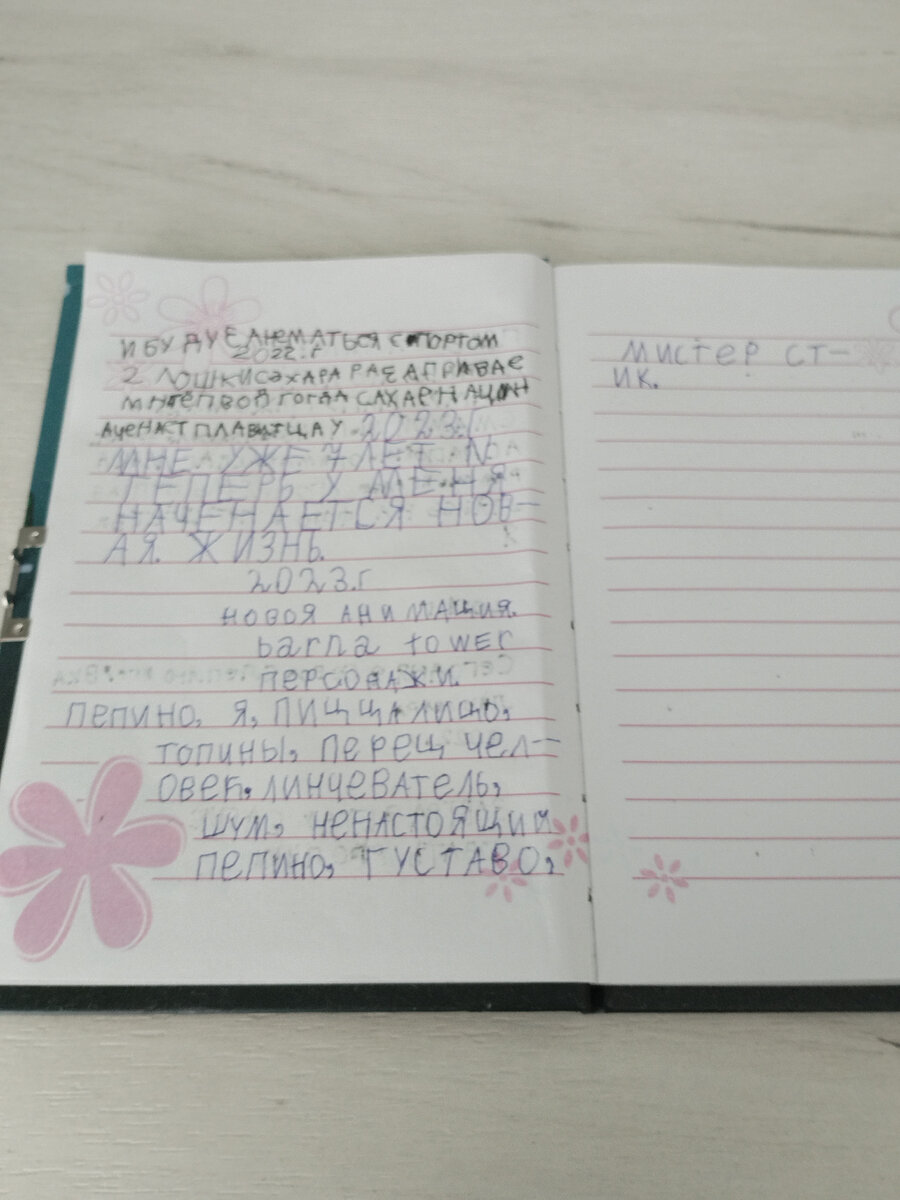 И БУ ДУ ЕАНЕМАТЬСЯ СПОРТОМ
2022.г
2 ЛОШКИ САХАРА
САХАР
2023.Г
МНЕ УЖЕ 7 ЛЕТ
ТЕПЕРЬ У МЕНЯ
НАЧЕНАЕТСЯ НОВ-
АЯ ЖИЗНЬ. !
2023.г
НОВОЯ АНИМАЦИЯ.
barna tower
ПЕРСОНАЖИ.
ПЕПИНО, Я, ПИЦЦАЛИЦО,
ТОПИНЫ, ПЕРЕЩ ЧЕЛ-
ОВЕК, ЛИНЧЕВАТЕЛЬ,
ШУМ, НЕНАСТОЯЩИЙ
ПЕПИНО, ГУСТАВО,
МИСТЕР СТ-
ИК.